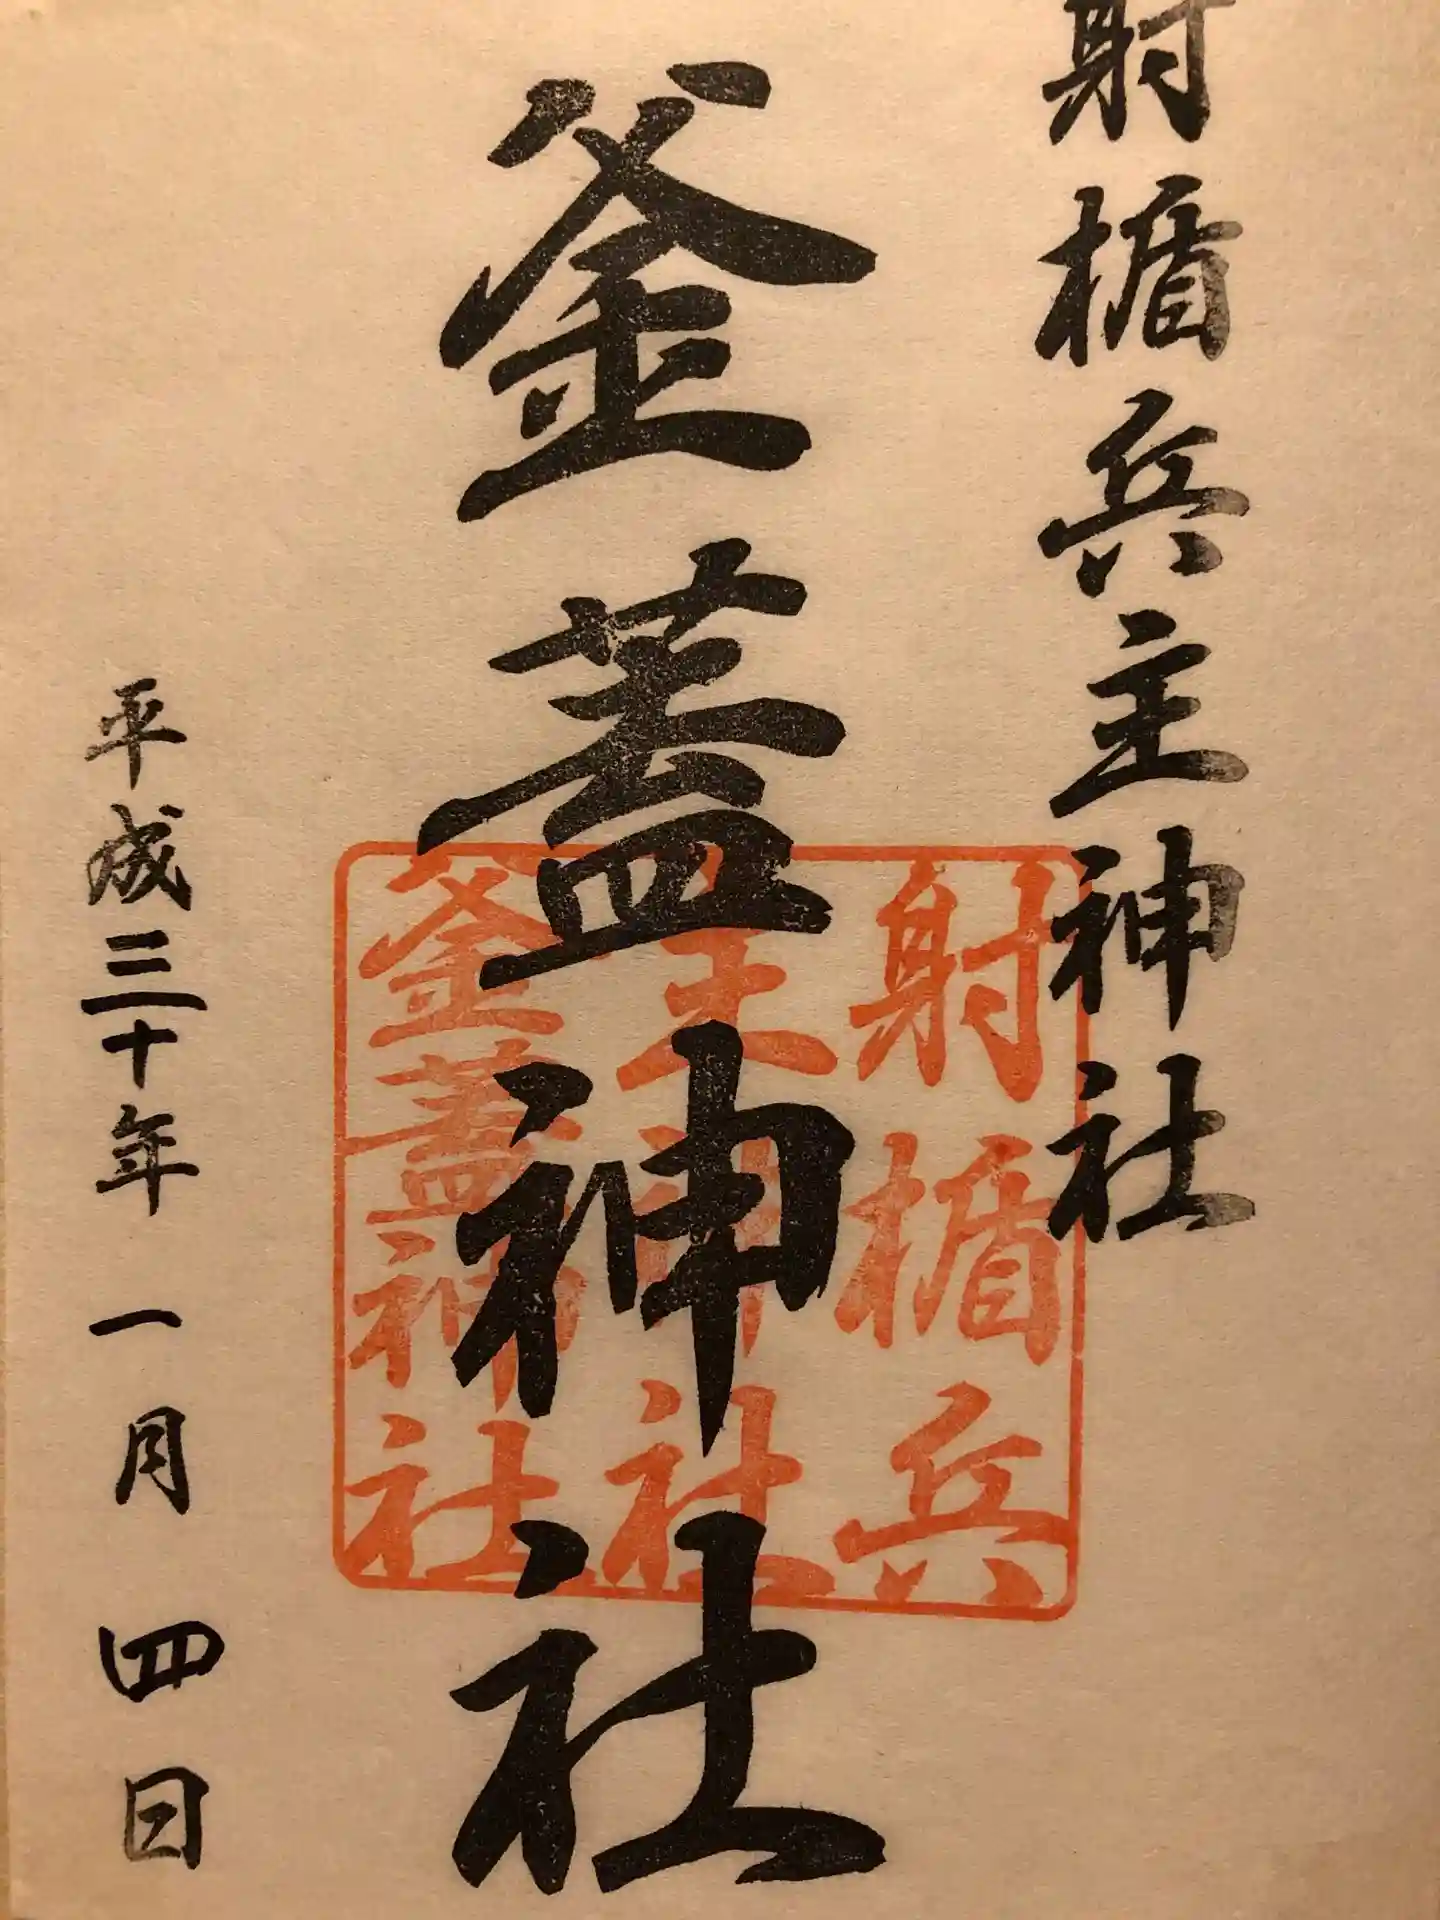 射楯兵主神社
釜蓋神社
平成三十年 一月 四日
射楯兵
主神社
釜蓋神社